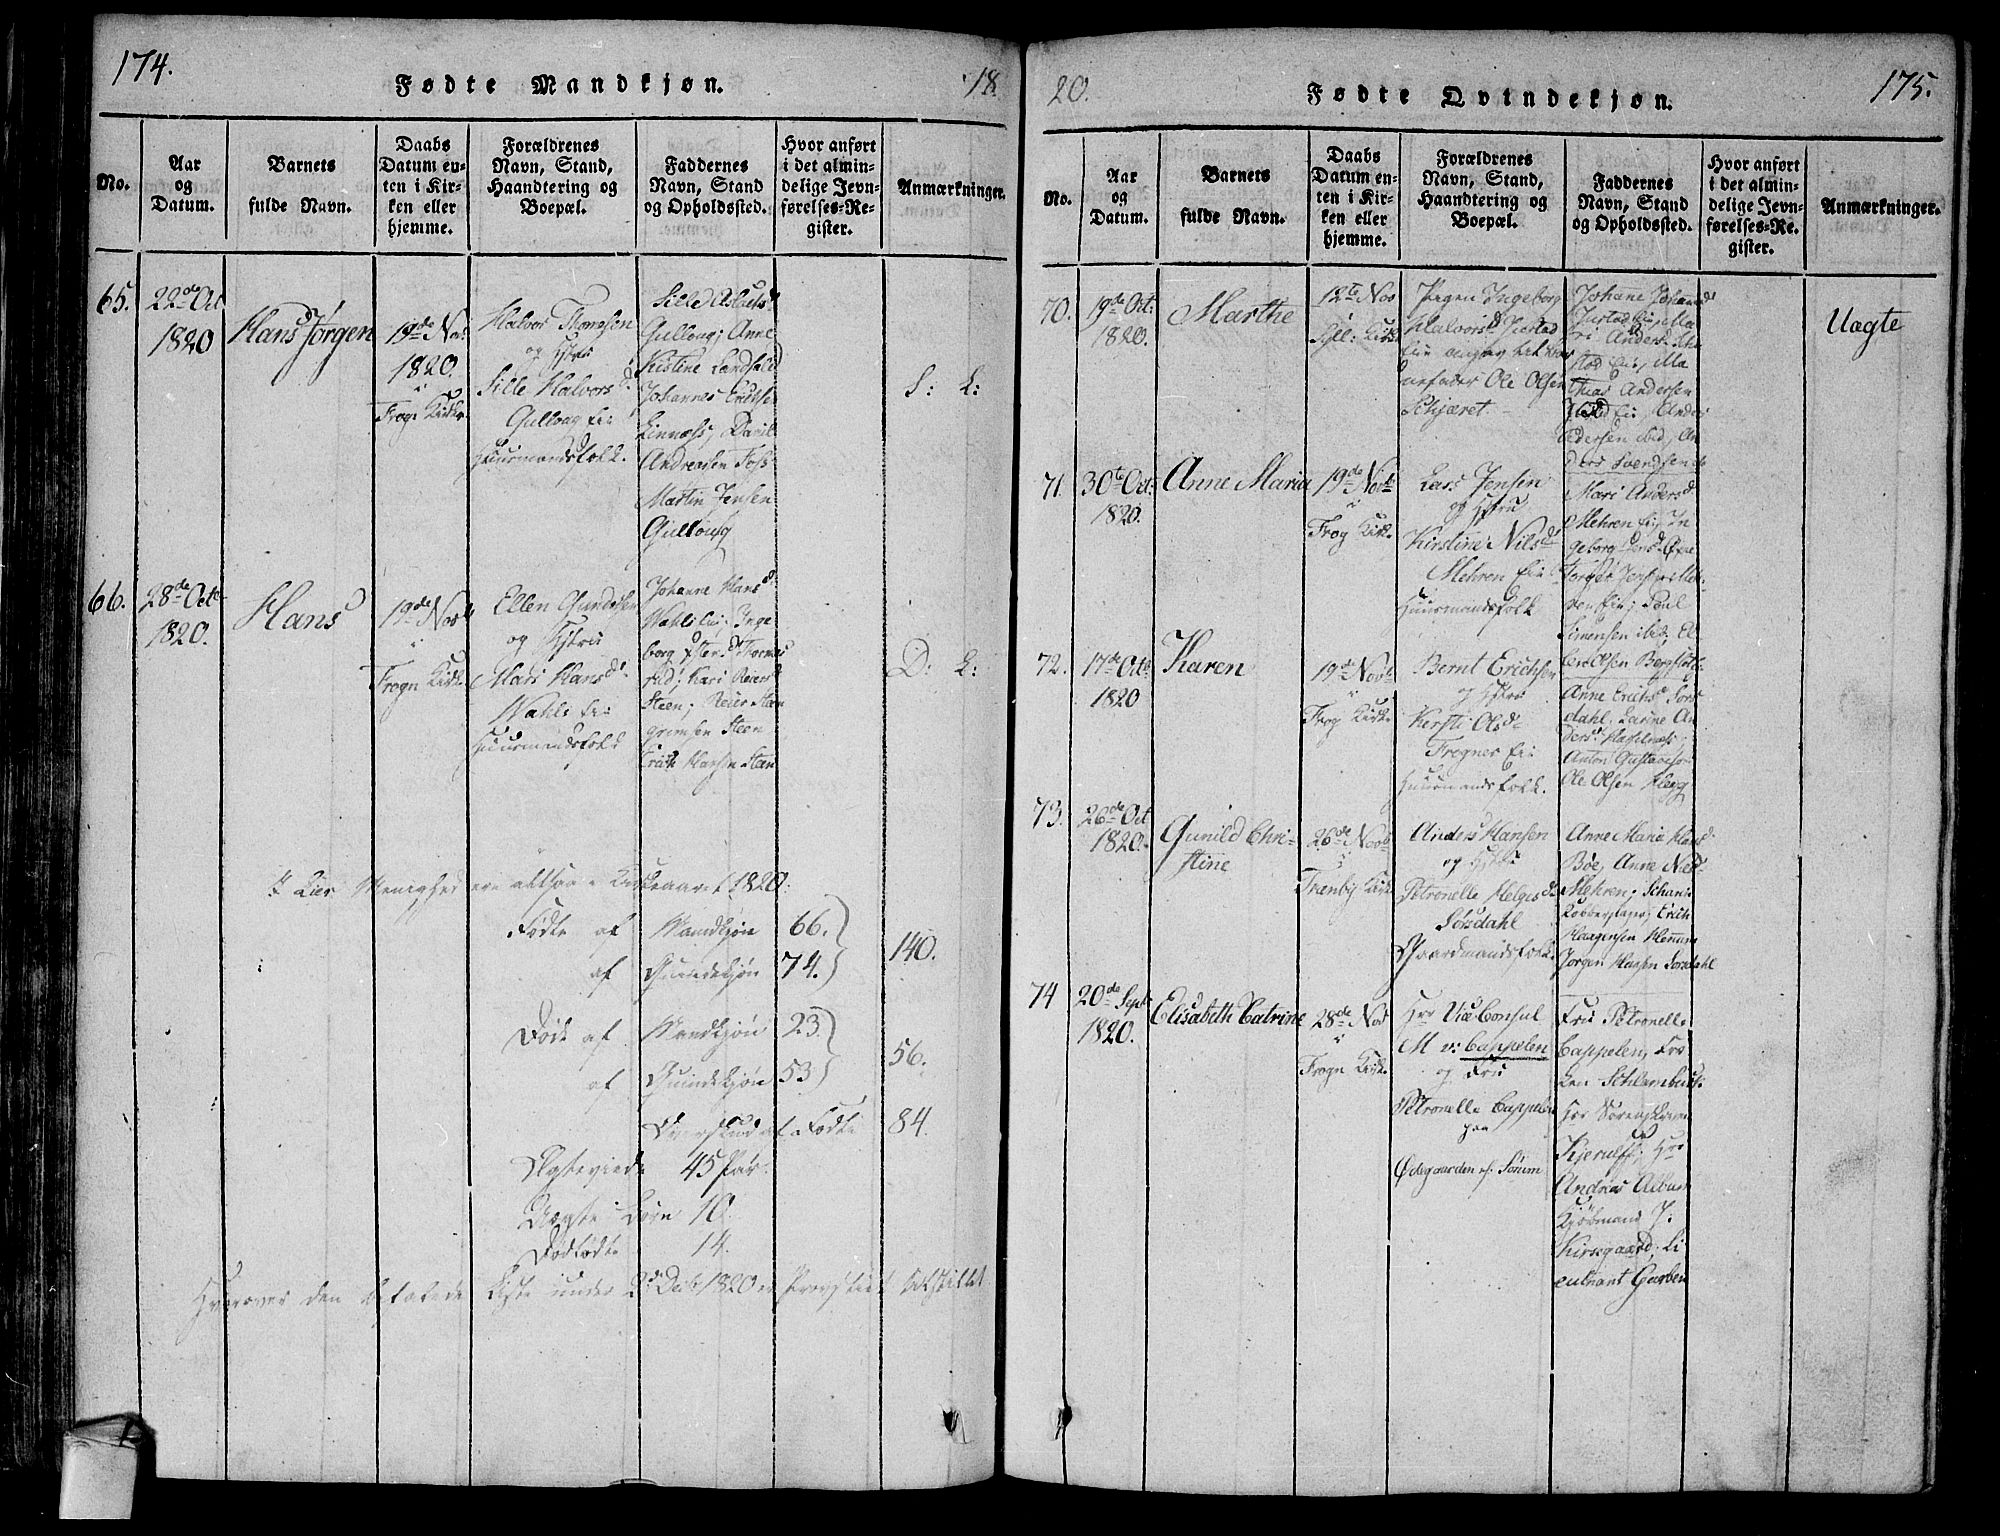 174.
Fødte Mandkjøn.
18
No.
Aar
og
Datum.
Barnets
fulde Navn.
Daabs
Datum en-
ten i Kir-
ken eller
hjemme.
Forældrenes
Navn, Stand,
Haandtering og
Boepæl.
Faddernes
Navn, Stand
og Opholdssted.
Hvor anført
i det almin-
delige Jevn-
førelses-Re-
gister.
Anmærkninger.
65.
22de Oct
1820
Hans Jørgen
19de Nov:
1820.
Frogn Kirke
Halvor Thomesen
og Hstru
Sille Halvorsd.
Gulloug Ei:
Huusmandsfolk.
Gulloug; Anne
Kistine
Johannes
Linnæss, David
Andreasen Foss
Martin Jensen
Gulloug
S: L:
66.
28de Octr
1820.
Hans
19de Novr
Frogn Kirke
Ellen Gundersen
og Hstru
Mari Hansd.
Wahls Ei:
Huusmandsfolk
Johanne Hansd
Wahls Ei; Inge
borg
Kari Reiersd
Steen; Reier Steen
grimsen Steen
Erich Hansen Steen
D: L:
I Lier Menighed ere altsaa i Kirkeaaret 1820:
Fødte af Mandkjøn 66.
af Quindekjøn 74.
140.
Døde af Mandkjøn 23
af Quindekjøn 53
56.
Overskud af Fødte 84.
Ægteviede 45 Par.
Uægte Børn 10.
Dødfødte 14.
Hvorover den befalede Liste under 2de Decbr 1820 er Provstiet tilstillet
20.
Fødte Qvindekjøn.
175.
No.
Aar
og
Datum.
Barnets
fulde Navn.
Daabs
Datum en-
ten i Kir-
ken eller
hjemme.
Forældrenes
Navn, Stand,
Haandtering og
Boepæl.
Faddernes
Navn, Stand
og Opholdssted.
Hvor anført
i det almin-
delige Jevn-
førelses-Re-
gister.
Anmærkninger.
70.
19de Oct:
1820.
Marthe
12te Nov
Sjll: Kirke
Pigen Ingeborg
Halvorsd
Ei: angav til Bar
nefader Ole Olsen
Schjæret
Johanne Johannesd
Andersen
Andersen ibid, An
ders Svendsen
Uægte
71.
30te Oct:
1820.
Anne Maria
19de Novbr
Frog Kirke
Lars Jensen
og Hstru
Kirstine Nilsd
Mehren Ei:
Huusmandsfolk
Mari Andersd
Mehren Ei; In
geborg Jensd
Poul
Simensen ibid; El
72.
17de Octb
1820
Karen
19de Novb
Frog Kirke
Bernt Erichsen
og Hstru
Kersti Olsd
Frognes Ei:
Huusmandsfolk.
Anne Erichsd Sørs
dahl, Larine An
dersd
Anton Gustavesen
Ole Olsen Klegg
73.
26de Oct
1820.
Gunild Chri-
stine
26de Novb
Tranby Kirke
Anders Hansen
og Hstru
Petronelle Helgesd
Sørsdahl
Gaardmandsfolk.
Anne Maria Hansd
Bøe, Anne Nielsd
Mehren;
Erich
Haagensen Hennum
Jørgen Hansen Sørsdahl
74
20de Sept:
1820.
Elisabeth Catrine
28de Nov
Frogn Kirke
Hrr Vice Consul
M v: Cappelen
og Fru
Petronelle Cappelen
paa
Ødegaarden af Sørum
Fru Petronelle
Cappelen, Frø
ken Schlambusk:
Hrr Sorenskriver
Kjerulff; Hrr
Andreas Album
Kjøbmand J:
Kirsgaard; Li
eutnant Garben